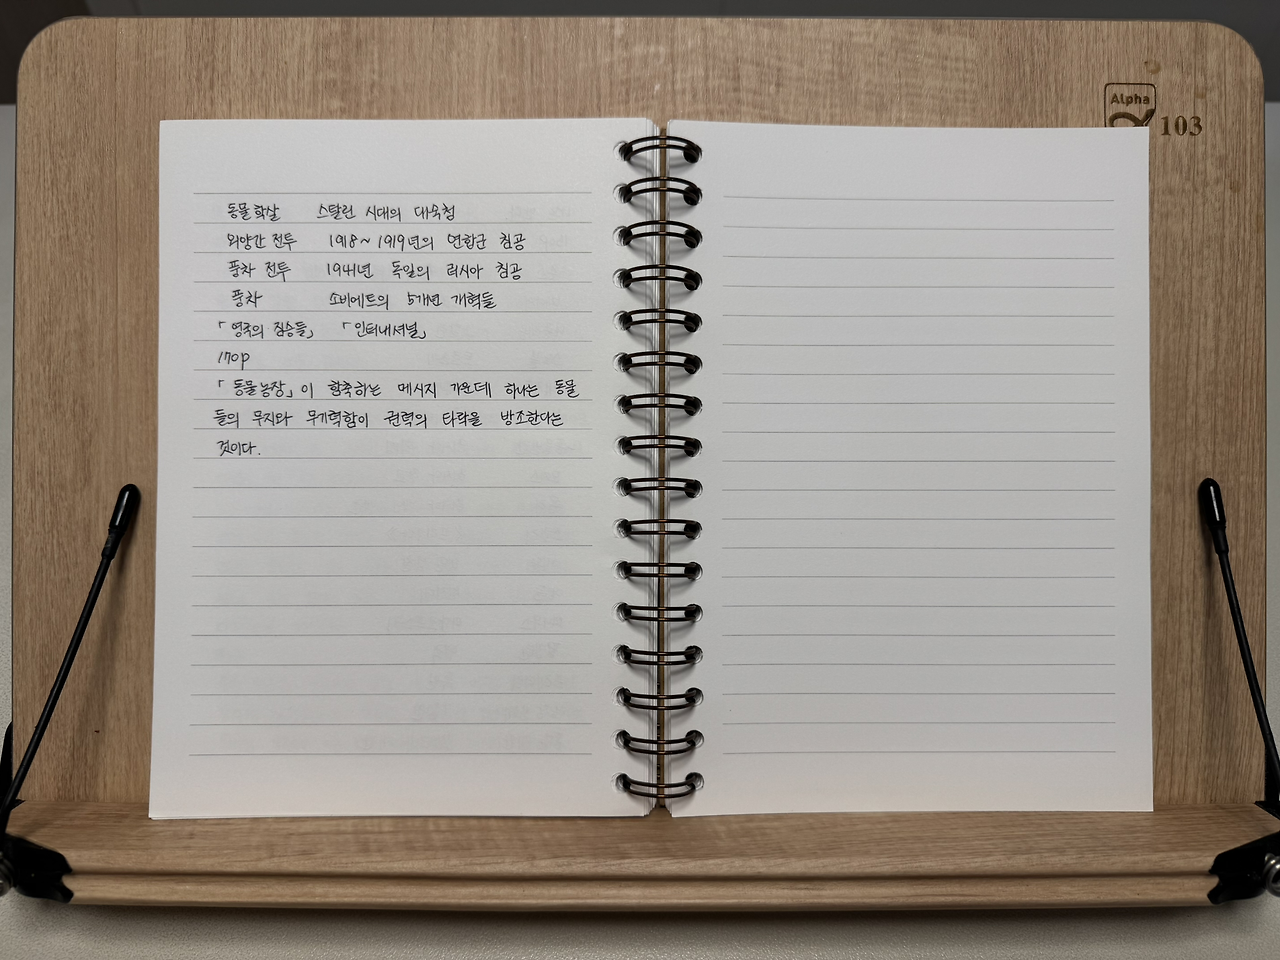 동물 학살 스탈린 시대의 대숙청
외양간 전투 1918~1919년의 연합군 침공
풍차 전투 1941년 독일의 러시아 침공
풍차 소비에트의 5개년 개혁들
「영국의 짐승들」 「인터내셔널」
170p
「동물농장」이 함축하는 메시지 가운데 하나는 동물
들의 무지와 무기력함이 권력의 타락을 방조한다는
것이다.
Alpha
103